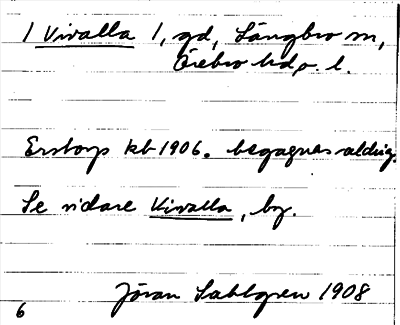 1 Vivalla 1, gd, Längbro sn,
Örebro hd o. l.
Erstorp kb 1906. begagnas aldrig.
Se vidare Vivalla, by.
Jöran Sahlgren 1908
6